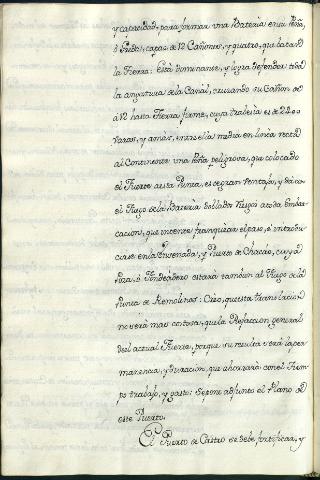 y capacidad, para formar una Bateria en su Peña,
ó Piedra, capas de 12 Cañones, y quatro, que batan á
la Tierra: Està dominante, y logra defender toda
la angostura de la Canal, cruzando su Cañon de
á 12 hasta tierra firme, cuya travesia es de 2200
varas, y àmàs, entre ella media en linea recta
al Continente una Peña peligrosa, que colocado
el Fuerte aesta Punta, es de gran Ventaja, y dexa
el Fuego de la Bateria doblados riesgos atoda Embar
cacion, que intente franquear el paso, ó introdu
cirse en la Ensenada, y Puerto de Chacao, cuya
Poza, ó Fondeadero estarà tambien al Fuego de la
Punta de Remolinos: Creo, que esta translacion
no serà mas costosa, que la Refaccion general
del actual Fuerte, porque su resulta serà la per
manencia, y duracion, que ahorrarà con el Tiem
po trabajo, y gasto: Se pone adjunto el Plano de
este Puerto.
El Puerto de Castro se debe fortificar, y